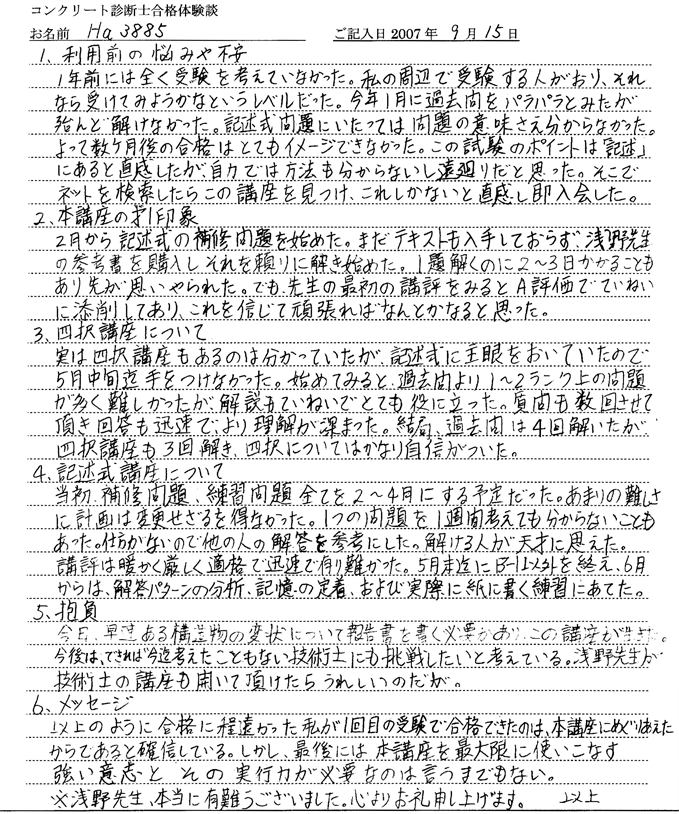 コンクリート診断士合格体験談
お名前 Ha 3885 ご記入日 2007年 9月 15日
1、利用前の悩みや不安
1年前には全く受験を考えていなかった。私の周辺で受験する人がおり、それ
なら受けてみようかなというレベルだった。今年1月に過去問をパラパラとみたが
殆んど解けなかった。記述式問題にいたっては問題の意味さえ分からなかった。
よって数ヶ月後の合格はとてもイメージできなかった。この試験のポイントは「記述」
にあると直感したが自力では方法も分からないし遠廻りだと思った。そこで
ネットを検索したらこの講座を見つけ、これしかないと直感し即入会した。
2、本講座の第1印象
2月から記述式の補修問題を始めた。まだテキストも入手しておらず、浅野先生
の参考書を購入しそれを頼りに解き始めた。1題解くのに2〜3日かかることも
あり先が思いやられた。でも、先生の最初の講評をみるとA評価でていねい
に添削してあり、これを信じて頑張ればなんとかなると思った。
3、四択講座について
実は四択講座もあるのは分かっていたが、記述式に主眼をおいていたので
5月中旬迄手をつけなかった。始めてみると、過去問より1〜2ランク上の問題
が多く難しかったが、解説もていねいでとても役に立った。質問も数回させて
頂き回答も迅速で、より理解が深まった。結局、過去問は4回解いたが、
四択講座も3回解き、四択についてはかなり自信がついた。
4、記述式講座について
当初、補修問題、練習問題全てを2〜4月にする予定だった。あまりの難しさ
に計画は変更せざるを得なかった。1つの問題を1週間考えても分からないことも
あった。仕方がないので他の人の解答を参考にした。解ける人が天才に思えた。
講評は暖かく厳しく適格で迅速で有り難かった。5月末迄にB-1以外を終え、6月
からは、解答パターンの分析、記憶の定着、および実際に紙に書く練習にあてた。
5、抱負
今日、早速ある構造物の変状について報告書を書く必要があり、この講座が
今後は、できれば今迄考えたこともない技術士にも挑戦したいと考えている。浅野先生が
技術士の講座も開いて頂けたらうれしいのだが。
6、メッセージ
以上のように合格に程遠かった私が1回目の受験で合格できたのは、本講座にめぐりあえた
からであると確信している。しかし、最後には本講座を最大限に使いこなす
強い意志と その実行力が必要なのは言うまでもない。
※浅野先生、本当に有難うございました。心よりお礼申し上げます。 以上